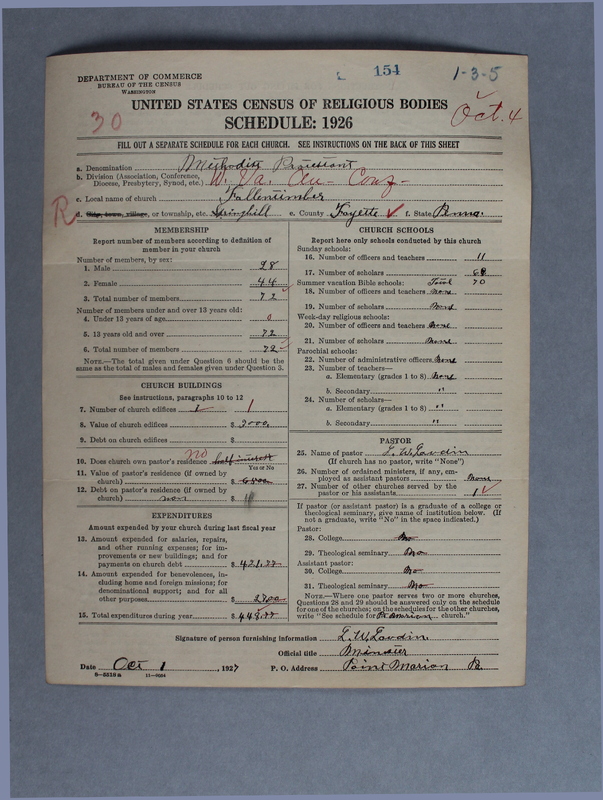 154
1-3-5
DEPARTMENT OF COMMERCE
BUREAU OF THE CENSUS
WASHINGTON
UNITED STATES CENSUS OF RELIGIOUS BODIES
30
Oct. 4
SCHEDULE: 1926
FILL OUT A SEPARATE SCHEDULE FOR EACH CHURCH. SEE INSTRUCTIONS ON THE BACK OF THIS SHEET
a. Denomination Methodist Protestant
b. Division (Association, Conference, Diocese, Presbytery, Synod, etc.) W. Va. An- Conf-
c. Local name of church Fallentimber
R
d. City, town, village, or township, etc. Springhill e. County Fayette f. State Penna.
MEMBERSHIP
Report number of members according to definition of
member in your church
Number of members, by sex:
1. Male 28
2. Female 44
3. Total number of members 72
Number of members under and over 13 years old:
4. Under 13 years of age 0
5. 13 years old and over 72
6. Total number of members 72
NOTE.—The total given under Question 6 should be the
same as the total of males and females given under Question 3.
CHURCH BUILDINGS
See instructions, paragraphs 10 to 12
7. Number of church edifices 1 1
8. Value of church edifices $ 3000.
9. Debt on church edifices $
10. Does church own pastor's residence no half interest
Yes or No
11. Value of pastor's residence (if owned by
church) $
12. Debt on pastor's residence (if owned by
church) non $
EXPENDITURES
Amount expended by your church during last fiscal year
13. Amount expended for salaries, repairs,
and other running expenses; for im-
provements or new buildings; and for
payments on church debt $ 421.00
14. Amount expended for benevolences, in-
cluding home and foreign missions; for
denominational support; and for all
other purposes $
15. Total expenditures during year $
CHURCH SCHOOLS
Report here only schools conducted by this church
Sunday schools:
16. Number of officers and teachers 11
17. Number of scholars
Summer vacation Bible schools: Total 70
18. Number of officers and teachers None
19. Number of scholars None
Week-day religious schools:
20. Number of officers and teachers None
21. Number of scholars None
Parochial schools:
22. Number of administrative officers None
23. Number of teachers—
a. Elementary (grades 1 to 8) None
b. Secondary "
24. Number of scholars—
a. Elementary (grades 1 to 8) "
b. Secondary "
PASTOR
25. Name of pastor L. W. Gavdin
(If church has no pastor, write "None")
26. Number of ordained ministers, if any, em-
ployed as assistant pastors None
27. Number of other churches served by the
pastor or his assistants 1
If pastor (or assistant pastor) is a graduate of a college or
theological seminary, give name of institution below. (If
not a graduate, write "No" in the space indicated.)
Pastor:
28. College No
29. Theological seminary No
Assistant pastor:
30. College No
31. Theological seminary No
NOTE.—Where one pastor serves two or more churches,
Questions 28 and 29 should be answered only on the schedule
for one of the churches; on the schedules for the other churches,
write "See schedule for Pt. Marion church."
Signature of person furnishing information L. W. Gavdin
Official title Minister
Date Oct 1, 1927 P. O. Address Point Marion Pa.
8-5518a 11-9064